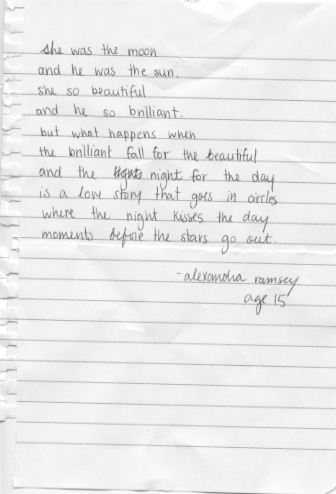 she was the moon
and he was the sun.
she so beautiful
and he so brilliant.
but what happens when
the brilliant fall for the beautiful
and the night for the day
is a love story that goes in circles
where the night kisses the day
moments before the stars go out.
-alexandria ramsey
age 15